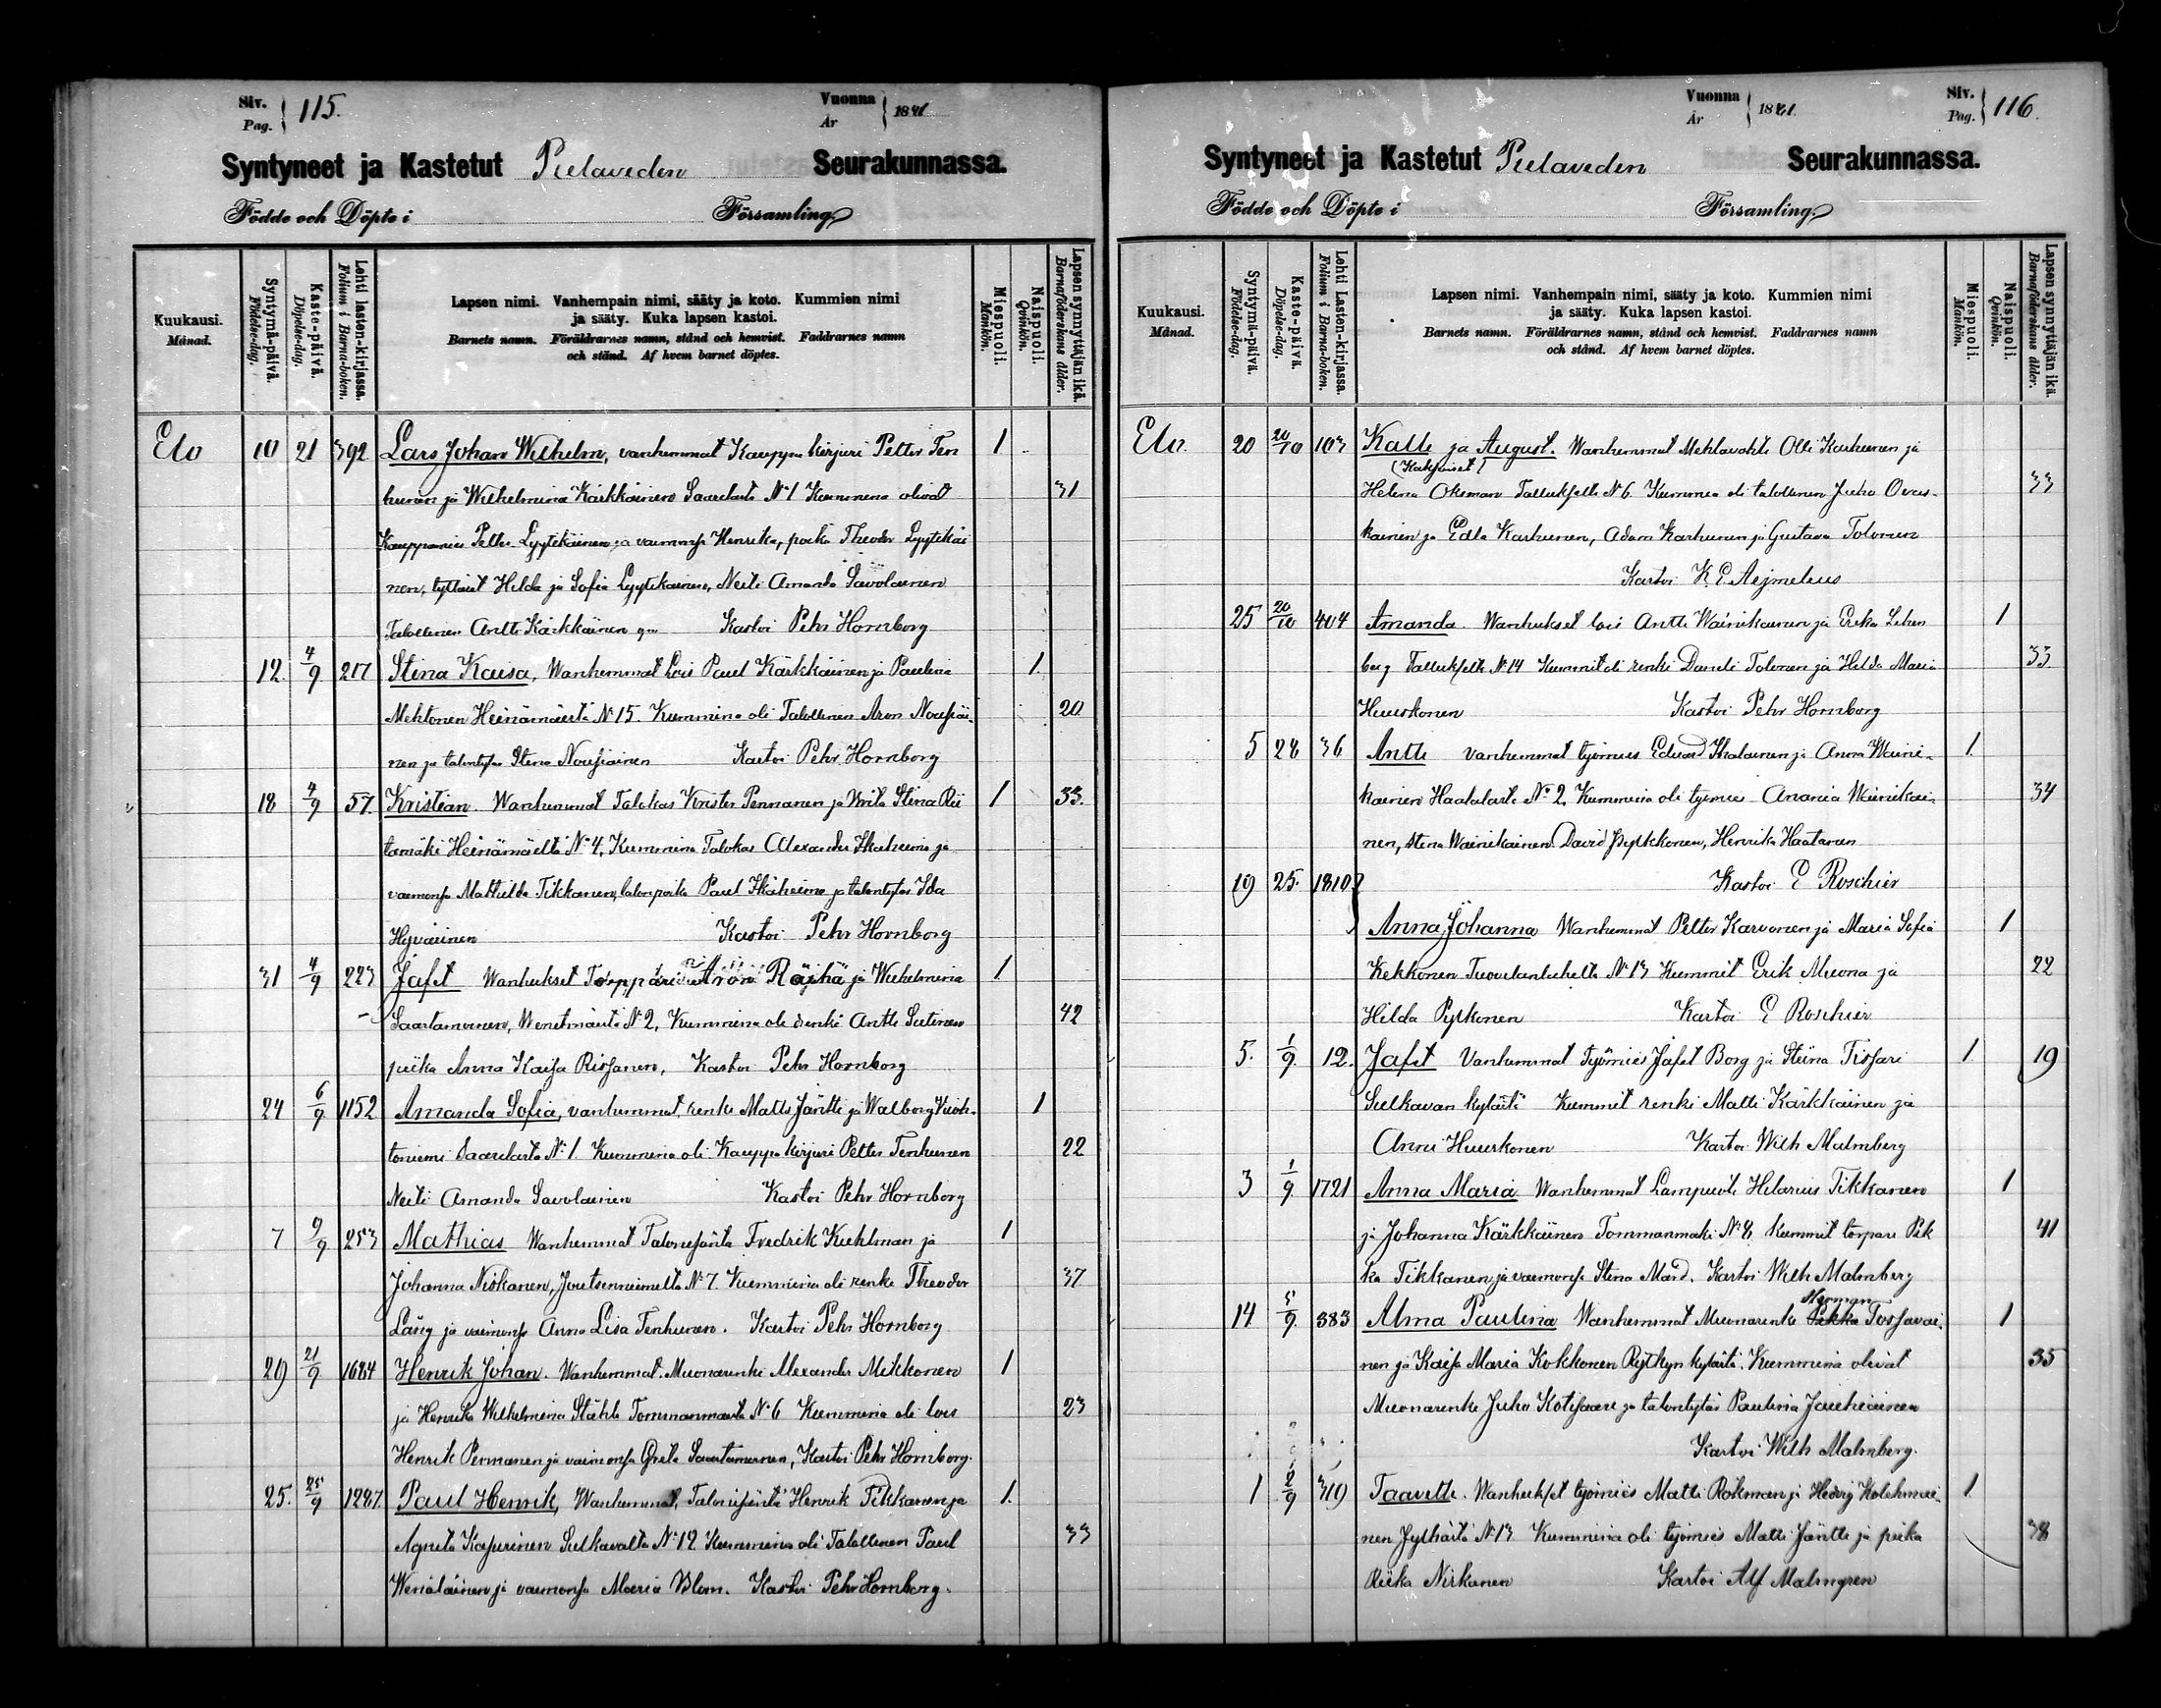 Siv.
Pag. } 115.
Vuonna
År } 1881
Syntyneet ja Kastetut Pielaveden Seurakunnassa.
Födde och Döpte i Församling.
Kuukausi.
Månad.
Syntymä-päivä.
Födelse-dag.
Kaste-päivä.
Döpelse-dag.
Lehti lasten-kirjassa.
Folium i Barna-boken.
Lapsen nimi. Vanhempain nimi, sääty ja koto. Kummien nimi
ja sääty. Kuka lapsen kastoi.
Barnets namn. Föräldrarnes namn, stånd och hemvist. Faddrarnes namn
och stånd. Af hvem barnet döptes.
Miespuoli.
Mankön.
Naispuoli.
Qvinkön.
Lapsen synnyttäjän ikä.
Barnaföderskans ålder.
Elo 10 21 392 Lars Johan Wilhelm, vanhemmat Kauppa kirjuri Petter Ten 1
hunen ja Wilhelmina Kärkkäinen Saarelasta N:1 Kummina olivat 31
Kauppamies Petter Lyytikäinen ja vaimonsa Henrika, poika Theodor Lyytikäi
nen, tyttäret Hilda ja Sofia Lyytikäinen, Neiti Amanda Savolainen
Talollinen Antti Kärkkäinen Kastoi Pehr Hornborg
12. 4/9 217 Stina Kaisa, Wanhemmat Lois Paul Kärkkäinen ja Paulina 1.
Mehtonen Heinämäestä N:15. Kummina oli Talollinen Aron Nousiai- 20
nen ja talontytär Stina Nousiainen Kastoi Pehr Hornborg
18 4/9 57. Kristian. Wanhemmat Talokas Krister Pennanen ja Brita Stina Rii 1 33.
tamäki Heinämäeltä N:4, Kummina Talokas Alexander Ikäheimo ja
vaimonsa Mathilda Tikkanen, talonpoika Paul Ikäheimo ja talontytär Ida
Hyvärinen Kastoi Pehr Hornborg
31 4/9 223 Jafet Wanhukset Torppari Aron Räihä ja Wilhelmina 1
Saastamoinen, Wenetmäestä N:2, Kummina oli renki Antti Sutinen 42
piika Anna Kaisa Rissanen, Kastoi Pehr Hornborg
24 6/9 1152 Amanda Sofia, vanhemmat, renki Matts Jäntti ja Walborg Kivih- 1
toniemi Saarelasta N:1. Kummina oli Kauppa kirjuri Petter Tenhunen 22
Neiti Amanda Savolainen Kastoi Pehr Hornborg
7 9/9 253 Mathias Wanhemmat Talonisäntä Fredrik Kuhlman ja 1
Johanna Niskanen, Joutsenniemeltä N:7. Kummina oli renki Theodor 37
Lång ja vaimonsa Anna Lisa Tenhunen. Kastoi Pehr Hornborg
29 21/9 1684 Henrik Johan. Wanhemmat. Muonarenki Alexander Mikkonen 1
ja Henrika Wilhelmina Ståhle Tommanmäestä N:6 Kummina oli lois 23
Henrik Pennanen ja vaimonsa Greta Saastamoinen, Kastoi Pehr Hornborg.
25. 25/9 1287. Paul Henrik, Wanhemmat, Talonisäntä Henrik Tikkanen ja 1.
Agneta Kasurinen Sulkavalta N:12 Kummina oli Talollinen Paul 33
Wenäläinen ja vaimonsa Maria Blom. Kastoi Pehr Hornborg.
Vuonna
År } 1881.
Siv.
Pag. } 116.
Syntyneet ja Kastetut Pielaveden Seurakunnassa.
Födde och Döpte i Församling.
Kuukausi.
Månad.
Syntymä-päivä.
Födelse-dag.
Kaste-päivä.
Döpelse-dag.
Lehti Lasten-kirjassa.
Folium i Barna-boken.
Lapsen nimi. Vanhempain nimi, sääty ja koto. Kummien nimi
ja sääty. Kuka lapsen kastoi.
Barnets namn. Föräldrarnes namn, stånd och hemvist. Faddrarnes namn
och stånd. Af hvem barnet döptes.
Miespuoli.
Mankön.
Naispuoli.
Qvinkön.
Lapsen synnyttäjän ikä.
Barnaföderskans ålder.
Elo. 20 20/10 103 Kalle ja August. Wanhemmat Mehtävahti Olli Karhunen ja
(Kaksoiset)
Helena Oksman Tallukselta N:6. Kummina oli talollinen Juho Ovas- 33
kainen ja Edla Karhunen, Adam Karhunen ja Gustava Tolonen
Kastoi K. E. Aejmelæus
25 20/10 404 Amanda. Wanhukset lois Antti Wäinikainen ja Erika Lehen 1
berg Tallukselta N:14 Kummit oli renki Danieli Tolonen ja Hilda Maria 33
Huuskonen Kastoi Pehr Hornborg
5 28 36 Antti vanhemmat työmies Edvard Ikalainen ja Anna Waini- 1.
kainen Haatalasta N:o 2, Kummina oli työmies Anania Wäinikai- 34
nen, Stina Wainikainen David Pylkkönen, Henrika Haatanen
19 25. 1810 Kastoi E Roschier
Anna Johanna Wanhemmat Petter Karvonen ja Maria Sofia 1
Kekkonen Tuovilanlahelta N:13 Kummit Erik Muona ja 22
Hilda Pylkonen Kastoi E Roschier
5. 1/9. 12. Jafet Vanhemmat Työmies Jafet Borg ja Stiina Tissari 1. 19
Sulkavan kylästä Kummit renki Matti Kärkkäinen ja
Anni Huuskonen Kastoi Wilh Malmberg
3 1/9 1721 Anna Maria Wanhemmat Lampuoti Hilarius Tikkanen 1
ja Johanna Kärkkäinen Tommanmäki N:8, kummit torpari Pek 41
ka Tikkanen ja vaimonsa Stina Mard. Kastoi Wilh Malmberg
Herman
14 5/9. 383 Alma Paulina Wanhemmat Muonarenki Pekka Tossavai- 1
nen ja Kaisa Maria Kokkonen Rytkyn kylästä. Kummina olivat 35
Muonarenki Juho Kotisaari ja talontytär Paulina Jauhiainen
Kastoi Wilh Malmberg.
1 2/9 319 Taavetti. Wanhukset työmies Matti Rokman ja Hedvig Kolehmai- 1.
nen Jylhästä N:13 Kummina oli työmies Matti Jäntti ja piika 38
Riika Niskanen Kastoi Alf Malmgren